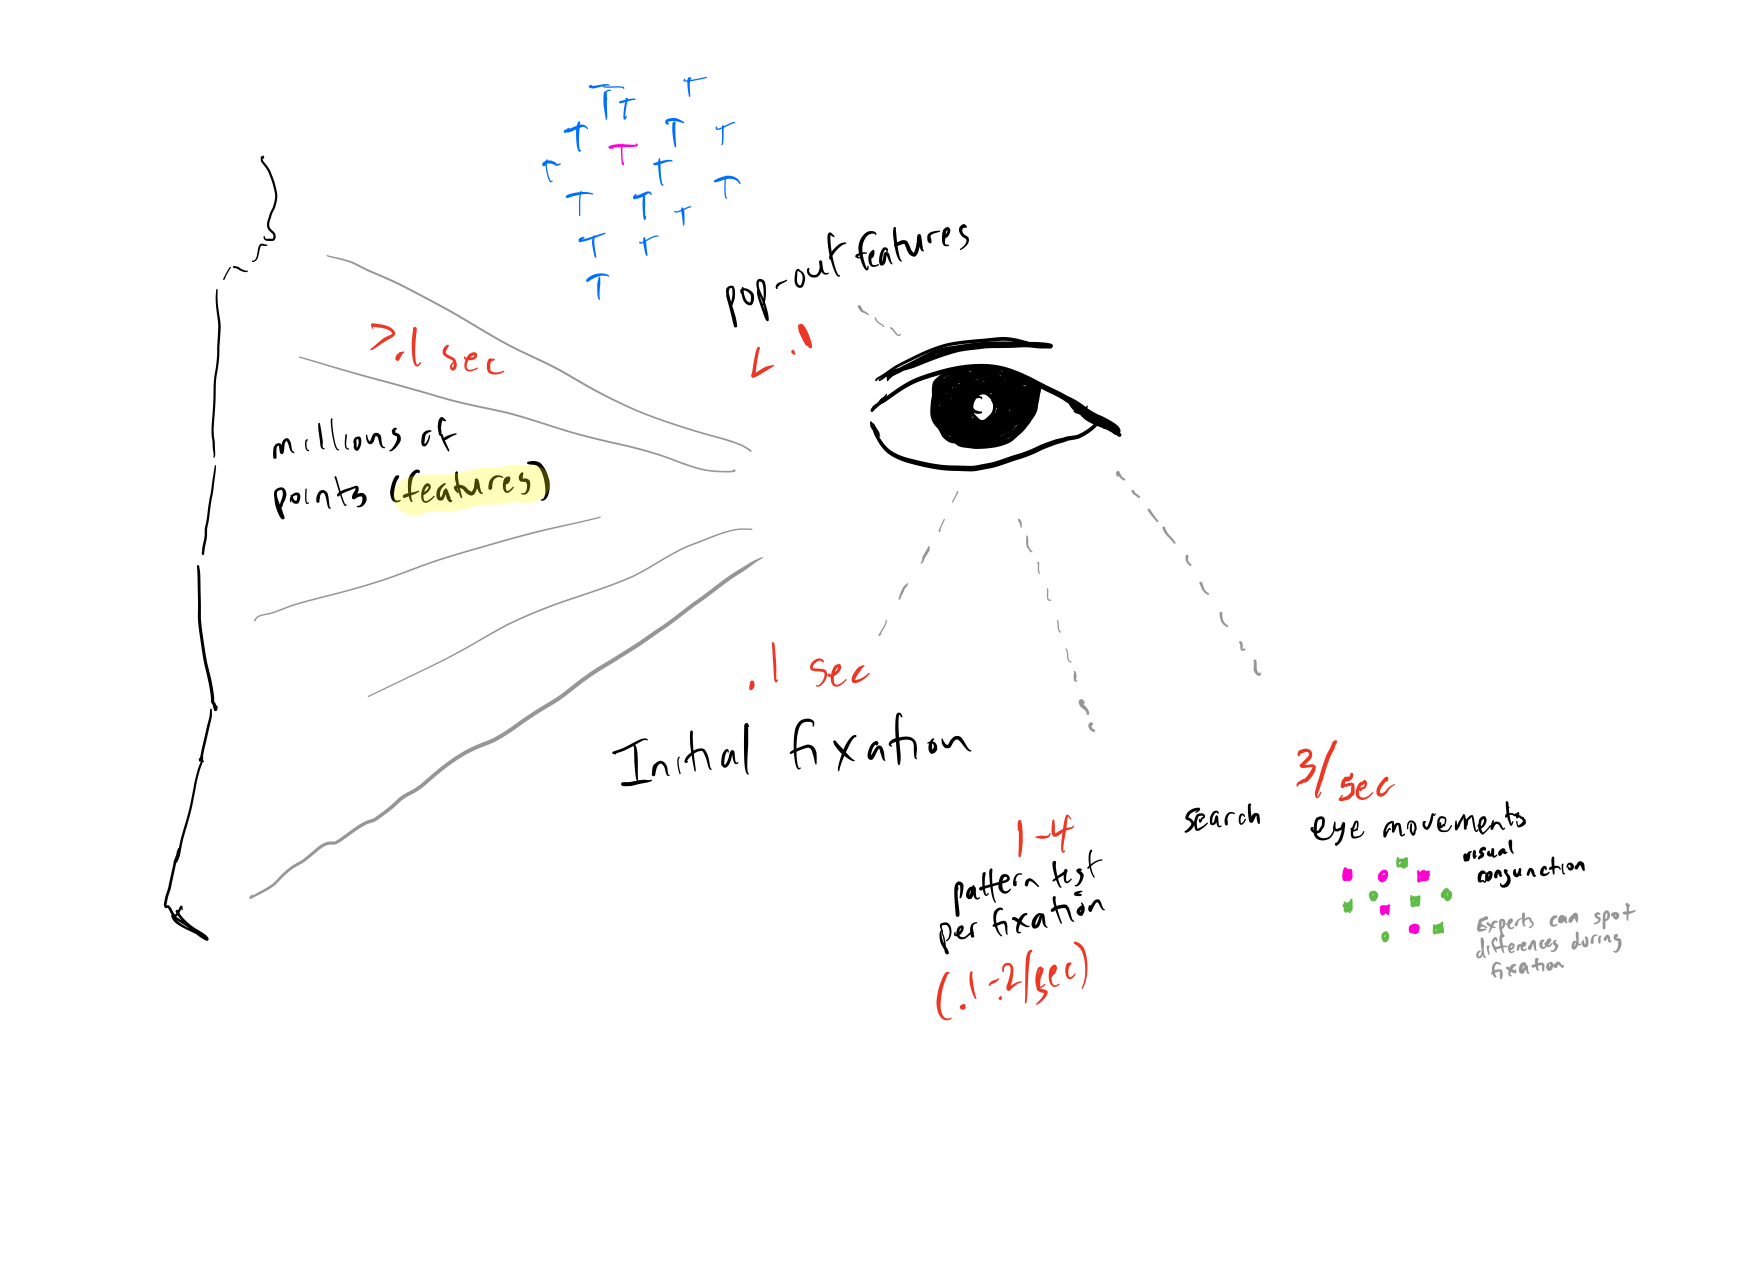 T T T
T T T
T T T
T T T T
T T
T
pop-out features
< .1
>.1 sec
millions of
points (features)
.1 sec
Initial fixation
1-4
pattern test
per fixation
(.1-.2/sec)
search
3/sec
eye movements
visual
conjunction
Experts can spot
differences during
fixation